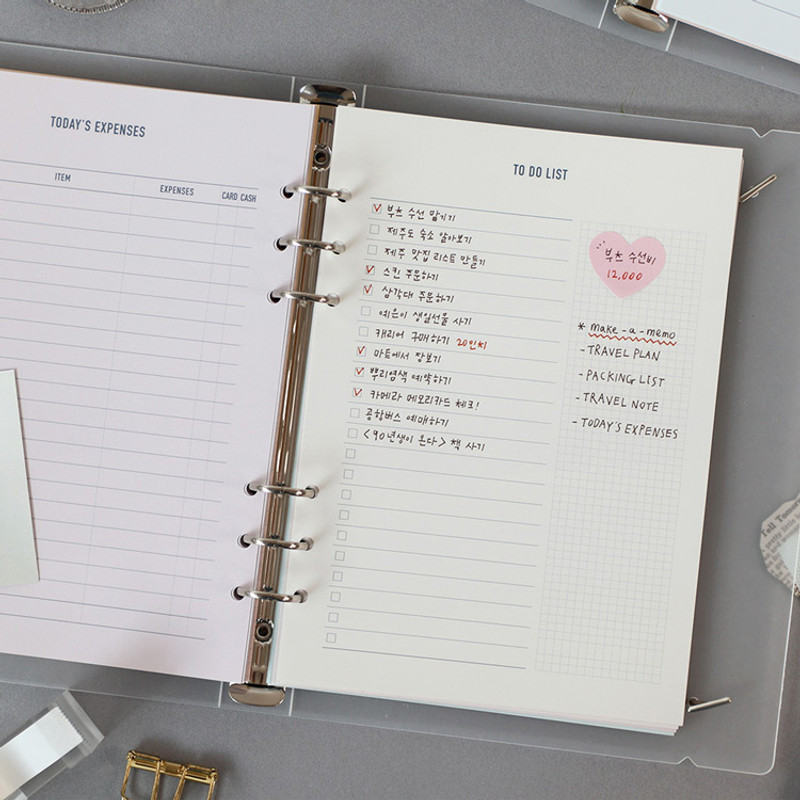 TODAY'S EXPENSES
ITEM EXPENSES CARD CASH
TO DO LIST
부츠 수선 맡기기
제주도 숙소 알아보기
제주 맛집 리스트 만들기
스킨 주문하기
삼각대 주문하기
예은이 생일선물 사기
캐리어 구매하기 20인치
마트에서 장보기
뿌리염색 예약하기
카메라 메모리카드 체크!
공항버스 예매하기
<90년생이 온다> 책 사기
부츠 수선비
12,000
* make-a-memo
- TRAVEL PLAN
- PACKING LIST
- TRAVEL NOTE
- TODAY'S EXPENSES